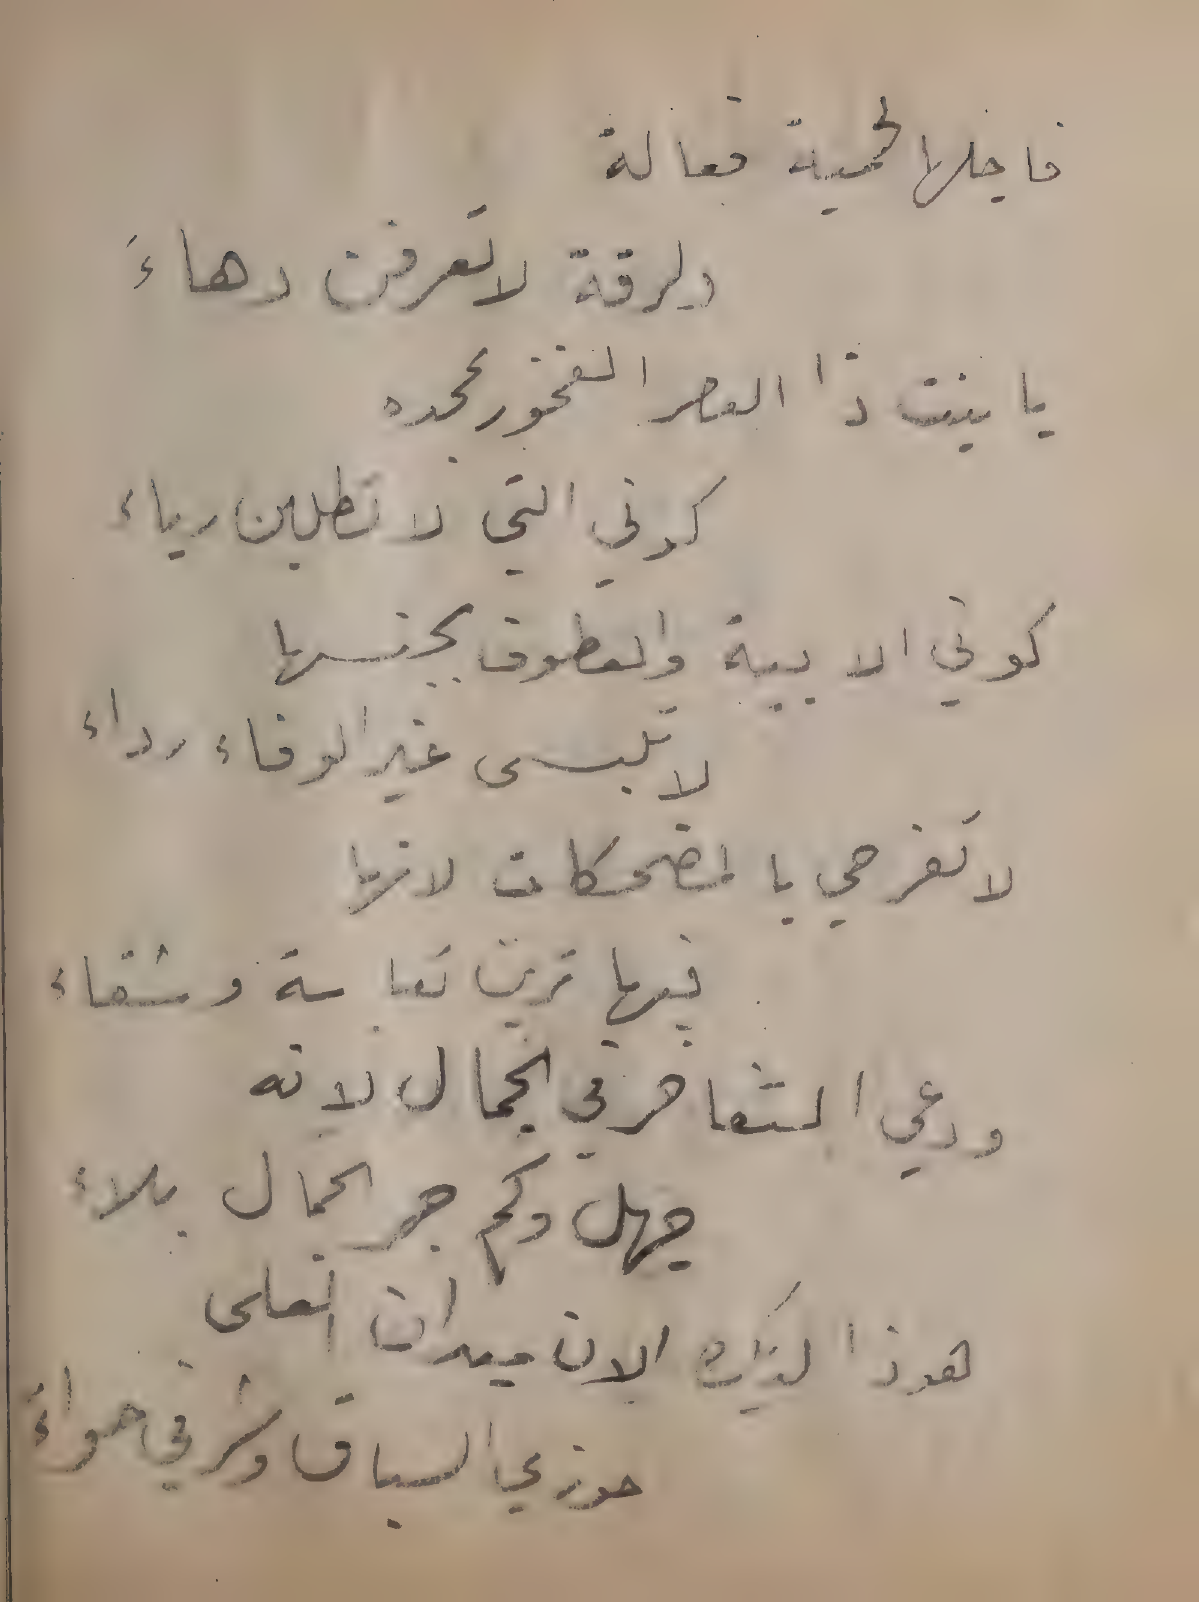 فاجلها لحمية فعالة
ولرقة لا تعرفن دهاءَ
يا بنت ذا العصر الفخور بمجده
كوني التي لا تطلبن رياء
كوني الابية والعطوف بجنسها
لا تلبسى غير الوفاء رداء
لا تفرحي بالمضحكات لانها
فيها ترين تعاسة وشقاء
ودعي التفاخر في الجمال لانه
جهل وكم جر الجمال بلاء
هوذا لديك الان ميدان العلى
حوزي السباق وشرفي حواءَ